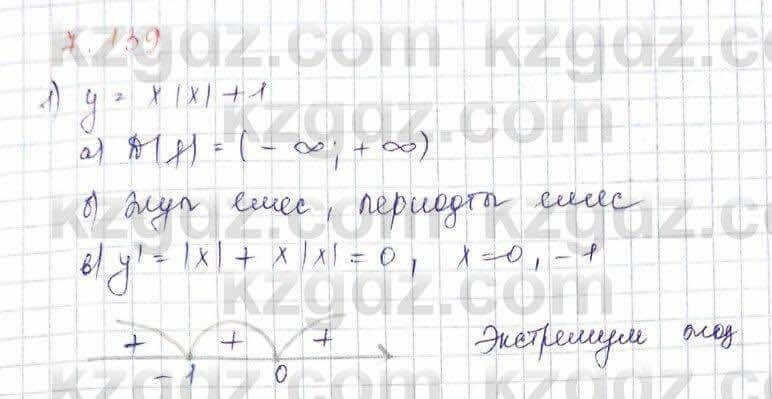 kzgdz.com kzgdz.com
7.139
1) y = x|x| + 1
kzgdz.com
а) D(y) = (-∞; +∞)
kzgdz.com
б) жұп емес, периодты емес
kzgdz.com
в) y' = |x| + x|x| = 0, x=0, -1
kzgdz.com
+ + + Экстремум
-1 0
kzgdz.com kzgdz.com